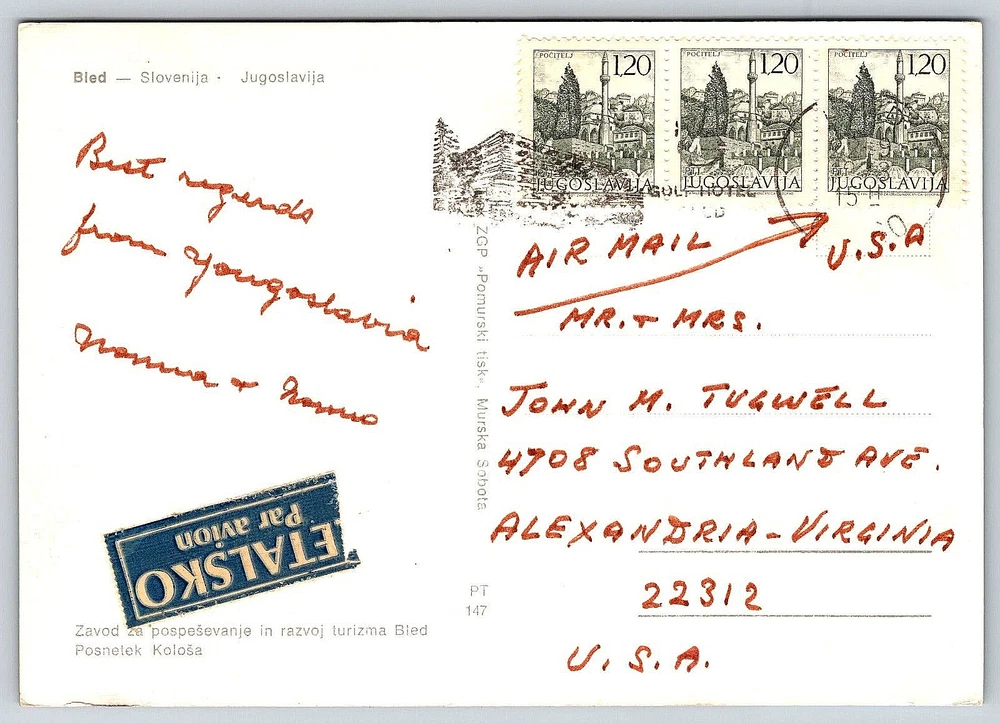 Bled — Slovenija · Jugoslavija
POČITELJ 1,20
JUGOSLAVIJA
POČITELJ 1,20
JUGOSLAVIJA
POČITELJ 1,20
JUGOSLAVIJA
GOLF HOTEL
15
Best regards
from Yougoslavia
Nonna + Nonno
AIR MAIL
U.S.A
MR. + MRS.
JOHN M. TUGWELL
4708 SOUTHLAND AVE.
ALEXANDRIA - VIRGINIA
22312
U.S.A.
ZGP »Pomurski tisk«, Murska Sobota
PT
147
ETALSKO
Par avion
Zavod za pospeševanje in razvoj turizma Bled
Posnetek Kološa